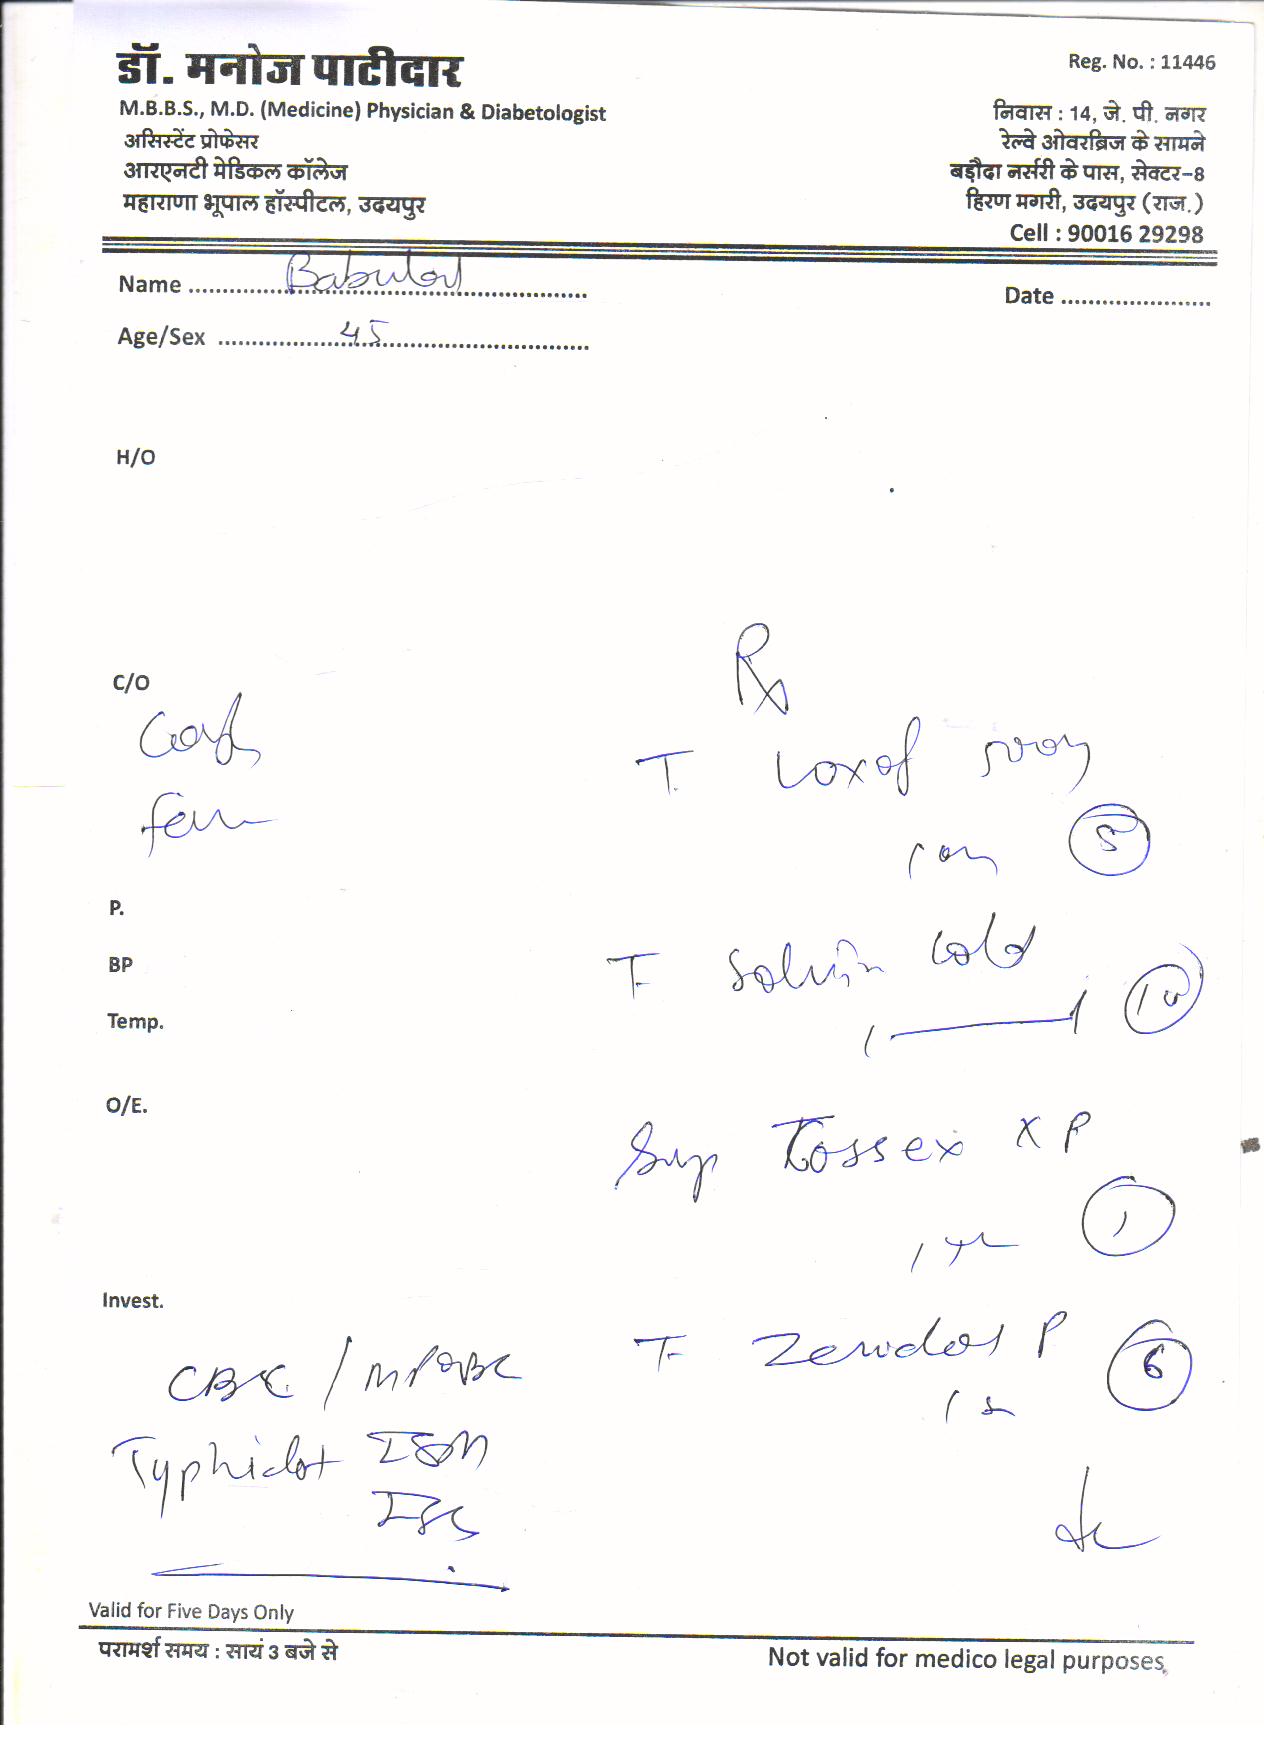 डॉ. मनोज पाटीदार
M.B.B.S., M.D. (Medicine) Physician & Diabetologist
असिस्टेंट प्रोफेसर
आरएनटी मेडिकल कॉलेज
महाराणा भूपाल हॉस्पीटल, उदयपुर
Reg. No. : 11446
निवास : 14, जे. पी. नगर
रेल्वे ओवरब्रिज के सामने
बड़ौदा नर्सरी के पास, सेक्टर-8
हिरण मगरी, उदयपुर (राज.)
Cell : 90016 29298
Name Babulal
Date
Age/Sex 45
H/O
C/O
P.
BP
Temp.
O/E.
Invest.
CBC /
Typhidot IGM
IgG
Rx
T. Loxof
5
T Solvin Cold
1 1 10
Syp Tossex
1
T Zerodol P
6
Valid for Five Days Only
परामर्श समय : सायं 3 बजे से
Not valid for medico legal purposes